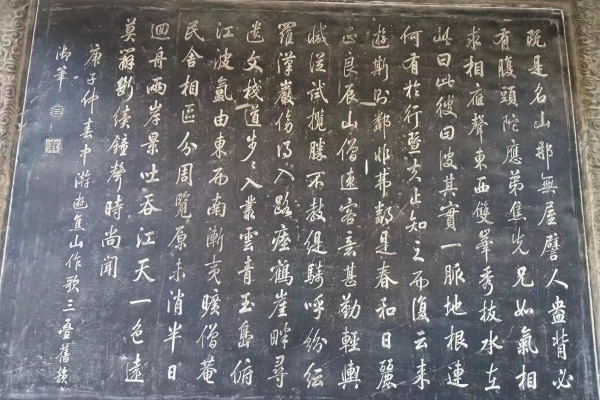 既是名山那無屋譬人盎背必
有腹頭陀應弟焦先兄如氣相
求相應聲東西雙峯秀拔水立
此曰此彼曰彼其實一脈地根連
何有於行暨去止知之而復云來
遊斯則鄰非弗鄰是春和日麗
正良辰山僧速客意甚勤輕輿
減從試攬勝不教緹騎呼紛紜
羅漢巖傍得入路瘞鶴崖畔尋
遺文棧道步々入叢雲青玉島俯
江波氳由東而南漸夷曠僧菴
民舍相區分周覽原未消半日
回舟兩岸景吐吞江天一色遠
莫辨斷續鐘聲時尚聞
庚子仲春中澣遊焦山作歌三疊舊韻
御筆